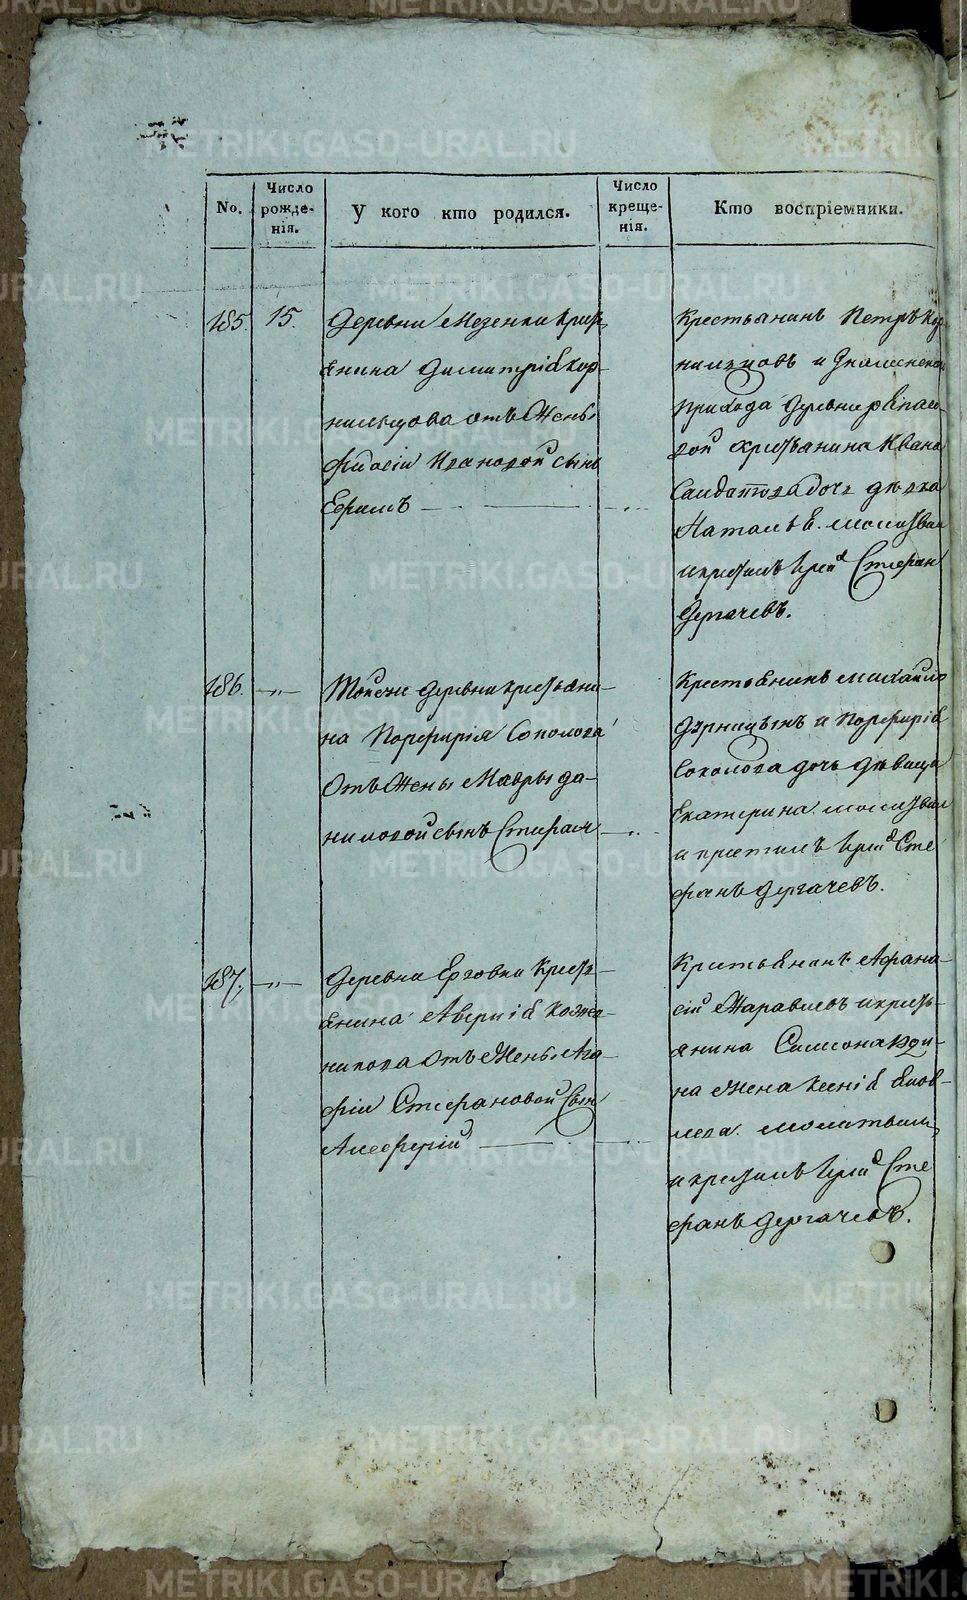 No.
Число рожде-нія.
У кого кто родился.
Число креще-нія.
Кто воспріемники.
185. 15.
Деревни Мезенки крест
янина Димитрія Кор-
нильцова отъ Жены
Ѳидосіи Ивановой сынъ
Ефимъ
Крестьянинъ Петръ Кор
нильцовъ и Знаменскаго
прихода Деревни
крестьянина Ивана
дочь дѣвка
Наталья. молитвил
и крестилъ Іерей Стефан
Дергачевъ.
186. —„—
Той же деревни крестьяни-
на Порфирія Соколова
Отъ Жены Мавры Да-
ниловой сынъ Стефан
Крестьянинъ Михайло
и Порфирія
Соколова дочь дѣвица
Екатерина. молитвил
и крестилъ Іерей Сте
фанъ Дергачевъ.
187. —„—
Деревни Еговки Крест-
янина Аверкія Коже-
никова Отъ Жены Ага
фіи Стефановой Сын
Алефтерій
Крестьянинъ Афана
сій Жаравлевъ и крест-
янина Симеона
на Жена Ксенія Яков-
лева. молитвилъ
и крестилъ Іерей Сте
фанъ Дергачевъ.
METRIKI.GASO-URAL.RU